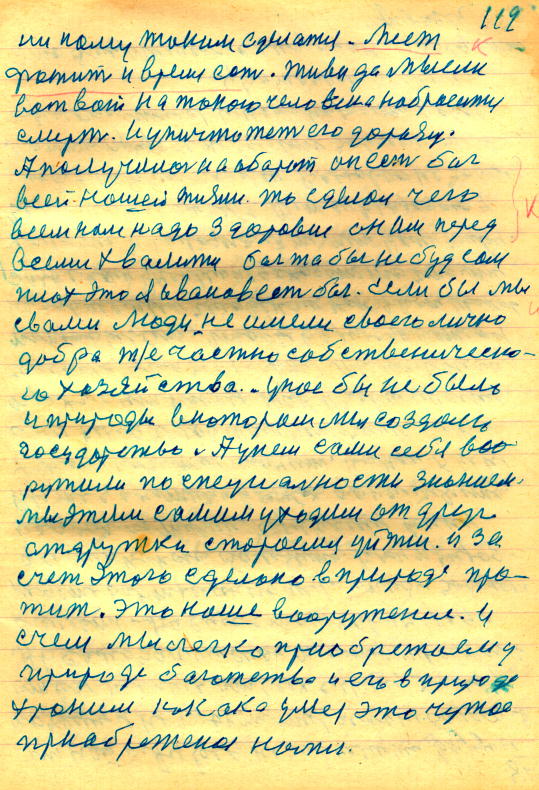 119
ни кому таким сделатя. Место
фротит и время сот. Живи да мысли
вот вот на такого человека набросится
смерт. И уничтожет его доразу.
А получилос на абарот он ест бог
всей нашей жизни. то сделал чего
всем нам надо здоровие он им перед
всеми хвалится бог та бы не будь сам
плох это я Иванов ест бог. если бы мы
с вами люди не имели своего лично
добра т/е частно собственическо-
го хозяйства. у нас бы не было
и природы в котором мы создали
государство. А унем сами себя воо
ружили по специалности знанием.
мы этим самим уходим от друг
от дружки стараемся уйти. и за
счет этого сделано в природе про-
тит. Это наше вооружение. и
счем мы легко приобретаем у
природе багатство и его в природе
храним как ака умея это чужое
приабретеное нами.